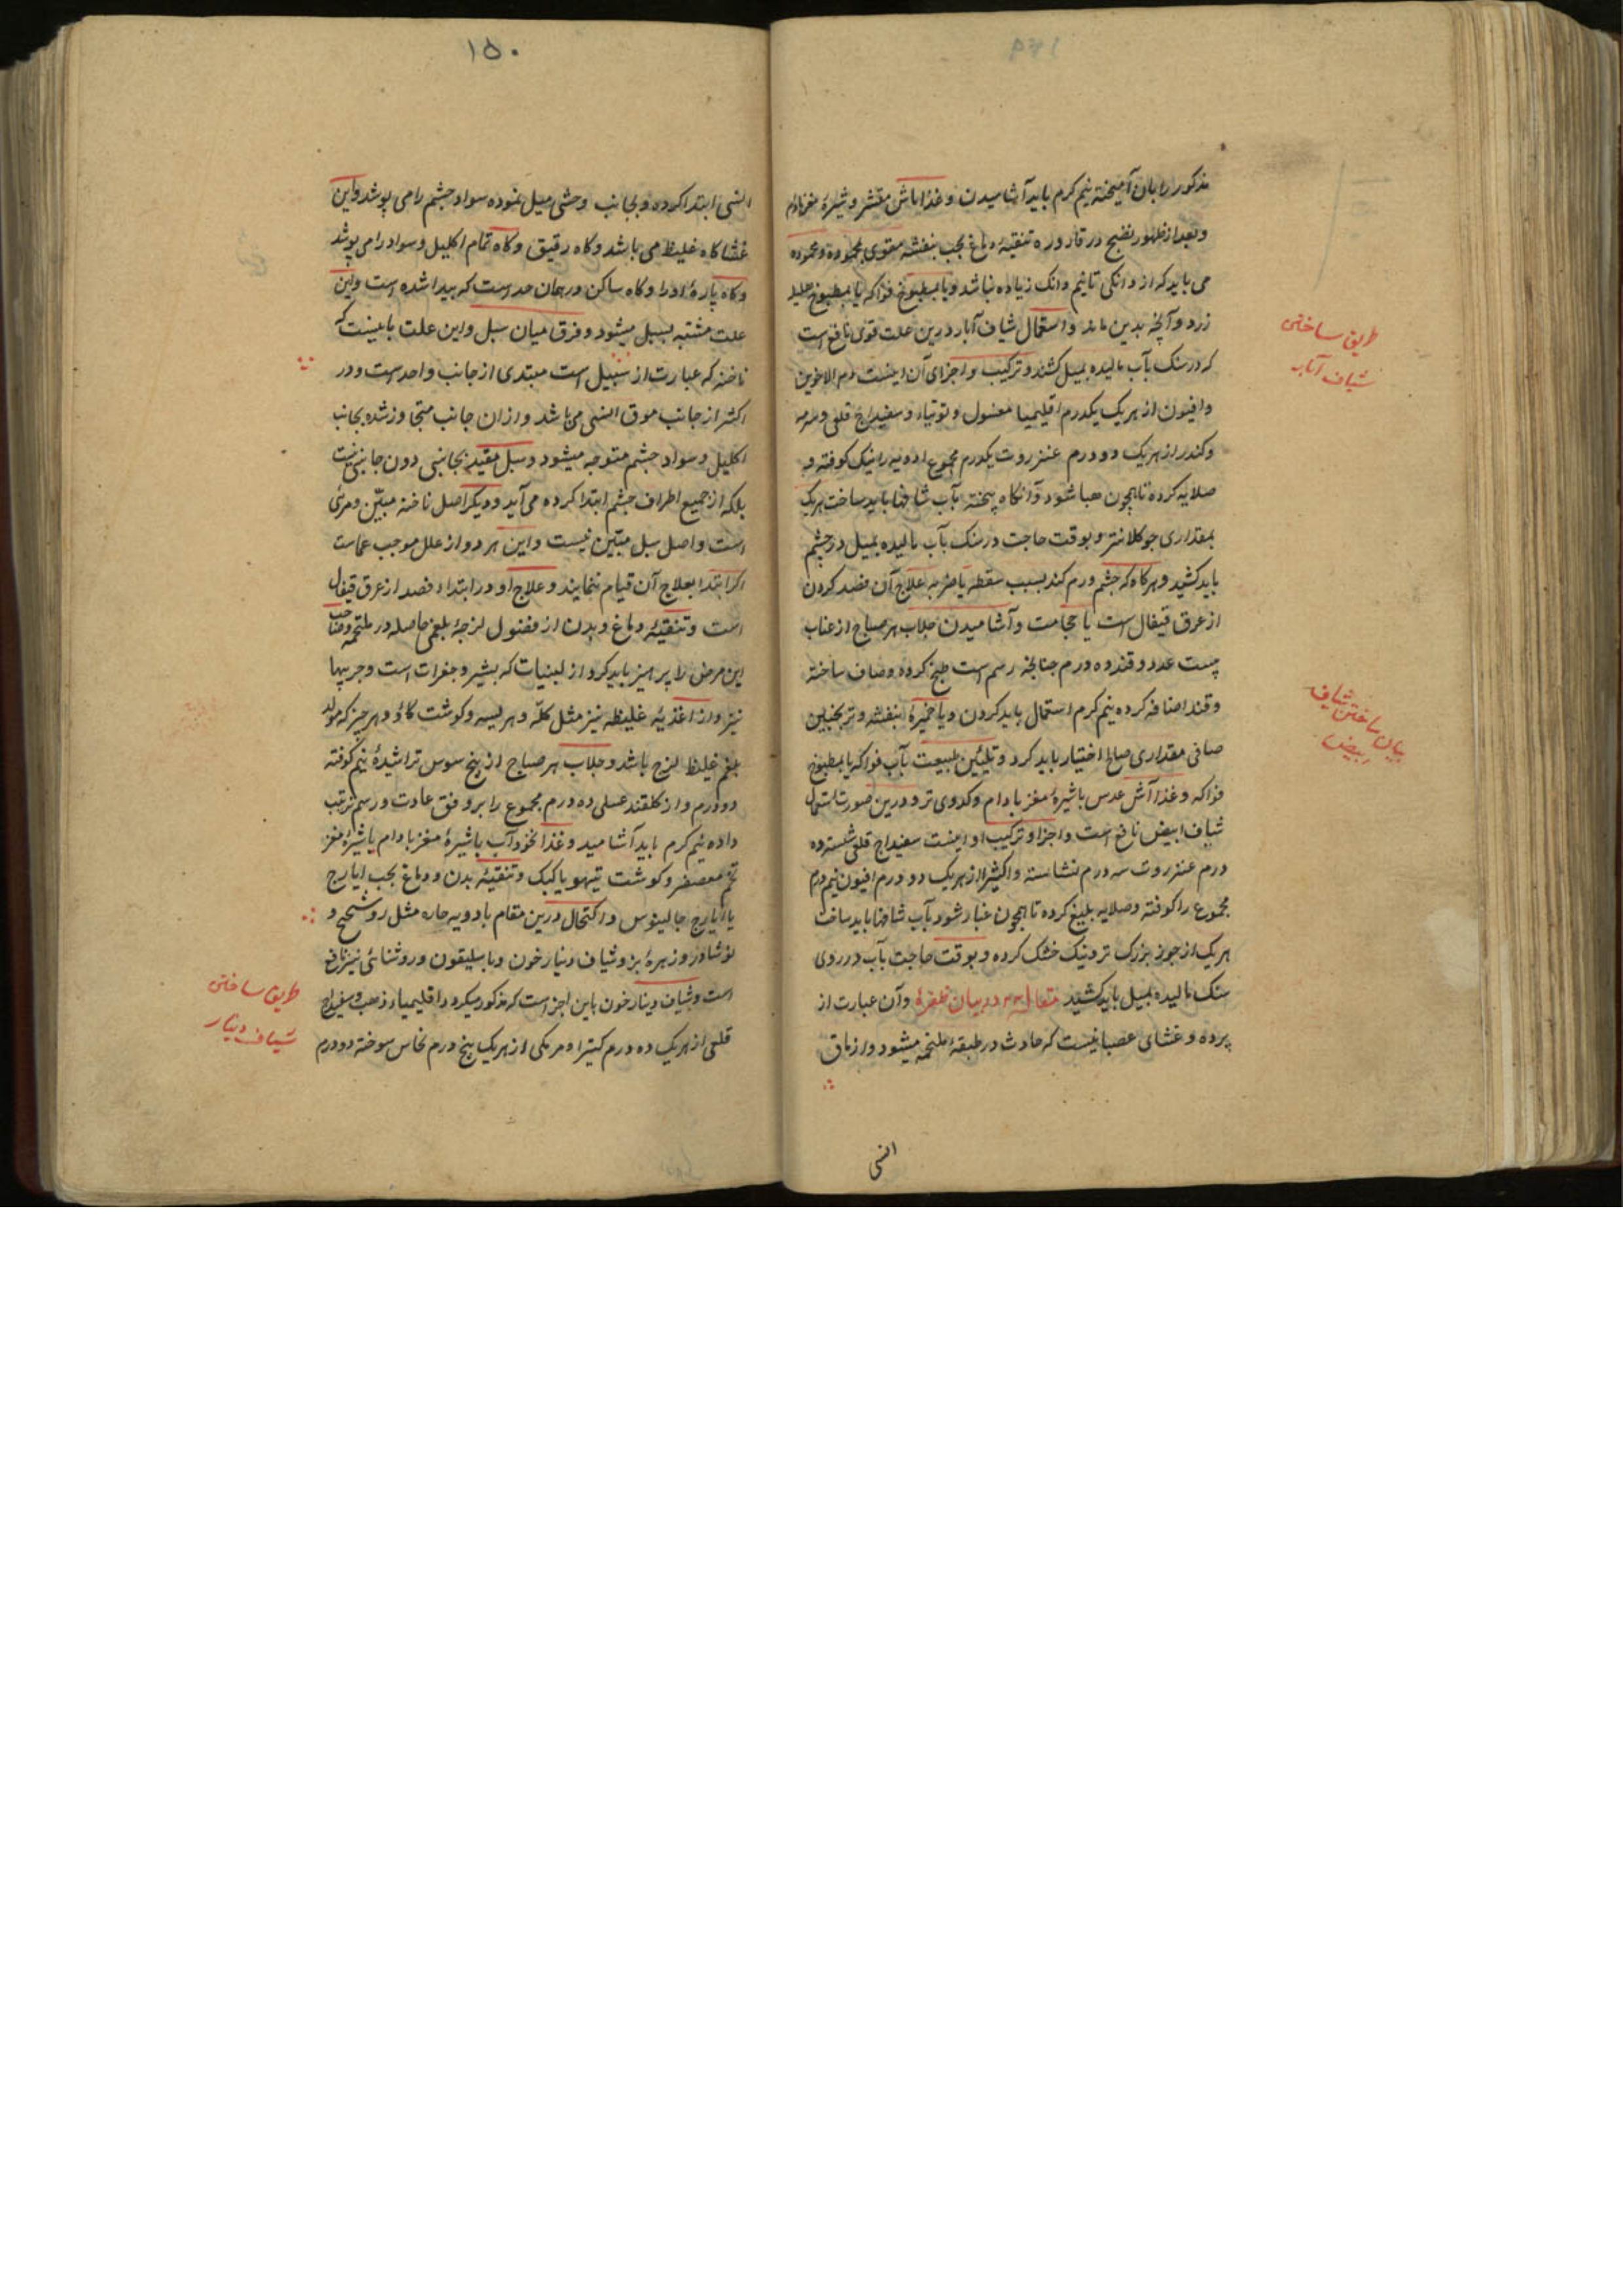 مذکور را بان آمیخته نیم کرم باید آشامیدن و غذا ماش مقشر و شیرهٔ مغز بادام
و بعد از ظهور نضج در قاروره تنقیهٔ دماغ بحب بنفشه مقوی بمحموده و محموده
می باید که از دانکی تا نیم دانک زیاده نباشد و یا بمطبوخ فواکه یا بمطبوخ هلیلهٔ
زرد و آنچه بدین ماند و استعمال شیاف آبار درین علت قوی نافع است
که در سنک بآب مالیده بمیل کشند و ترکیب و اجزای آن اینست دم الاخوین
و افیون از هر یک یکدرم اقلیمیا مغسول و توتیاء و سفیداج قلعی و سرمه
و کندر از هر یک دو درم عنزروت یکدرم مجموع ادویه را نیک کوفته و
صلایه کرده تا همچون هبا شود و آنکاه پخته بآب شافها باید ساخت هر یک
بمقداری جو کلانتر و بوقت حاجت در سنک بآب مالیده بمیل در چشم
باید کشید و هرکاه که چشم ورم کند بسبب سقطه یا ضربه علاج آن فصد کردن
از عرق قیفال است یا حجامت و آشامیدن جلاب هر صباح از عناب
بیست عدد و قند ده درم چنانچه رسم است طبخ کرده و صاف ساخته
و قند اضافه کرده نیم کرم استعمال باید کردن و یا خمیرهٔ بنفشه و ترنجبین
صافی مقداری صالح اختیار باید کرد و تلیین طبیعت بآب فواکه یا بمطبوخ
فواکه و غذا آش عدس با شیرهٔ مغز بادام و کدوی تر و درین صورت استعمال
شیاف ابیض نافع است و اجزا و ترکیب او اینست سفیداج قلعی شسته ده
درم عنزروت سه درم نشاسته و کثیرا از هر یک دو درم افیون نیم درم
مجموع را کوفته و صلایه بلیغ کرده تا همچون غبار شود بآب شافها باید ساخت
هر یک از جو بزرک تر و نیک خشک کرده و بوقت حاجت بآب در روی
سنک مالیده بمیل باید کشید مقاله در بیان ظفره و آن عبارت از
پرده و غشای عصبانیست که حادث در طبقهٔ ملتحمه میشود و از ماق
انسی
طریق ساختن
شیاف آبار
بیان ساختن شیاف
ابیض
۱۵۰
انسی ابتدا کرده و بجانب وحشی میل نموده سواد چشم را می پوشد و این
غشا کاه غلیظ می باشد و کاه رقیق و کاه تمام اکلیل و سواد را می پوشد
و کاه پارهٔ او را و کاه ساکن در همان حد است که پیدا شده است و این
علت مشتبه بسبل میشود و فرق میان سبل و این علت باینست که
ناخنه که عبارت از سبیل است مبتدی از جانب واحد است و در
اکثر از جانب موق انسی می باشد و از ان جانب متجاوز شده بجانب
اکلیل و سواد چشم متوجه میشود و سبل مقید بجانبی دون جانبی نیست
بلکه از جمیع اطراف چشم ابتدا کرده می آید و دیکر اصل ناخنه مبیّن و مرئی
است و اصل سبل مبیّن نیست و این هر دو از علل موجب عماست
اکر ابتدا بعلاج آن قیام ننمایند و علاج او در ابتدا فصد از عرق قیفال
است و تنقیهٔ دماغ و بدن از فضول لزجهٔ بلغمی حاصله در ملتحمه و صاحب
این مرض را پرهیز باید کرد از لبنیات که بشیر و جغرات است و چربیها
نیز و از اغذیهٔ غلیظه نیز مثل کلّه و هریسه و کوشت کاو و هر چیز که مولد
بلغم غلیظ لزج باشد و جلاب هر صباح از بیخ سوس تراشیدهٔ نیم کوفته
دو درم و از کلقند عسلی ده درم مجموع را بر وفق عادت و رسم ترتیب
داده نیم کرم باید آشامید و غذا نخود آب با شیرهٔ مغز بادام یا شیرهٔ مغز
تخم معصفر و کوشت تیهو یا کبک و تنقیهٔ بدن و دماغ بحب ایارج
یا ایارج جالینوس و اکتحال درین مقام بادویه حاره مثل روسختج و
نوشادر و زهرهٔ بز و شیاف دینارخون و باسلیقون و روشنائی نیز نافع
است و شیاف دینارخون باین اجزاست که مذکور میکردد اقلیمیاء ذهب و سفیداج
قلعی از هر یک ده درم کتیرا و مر مکی از هر یک پنج درم نحاس سوخته دو درم
طریق ساختن
شیاف دینار